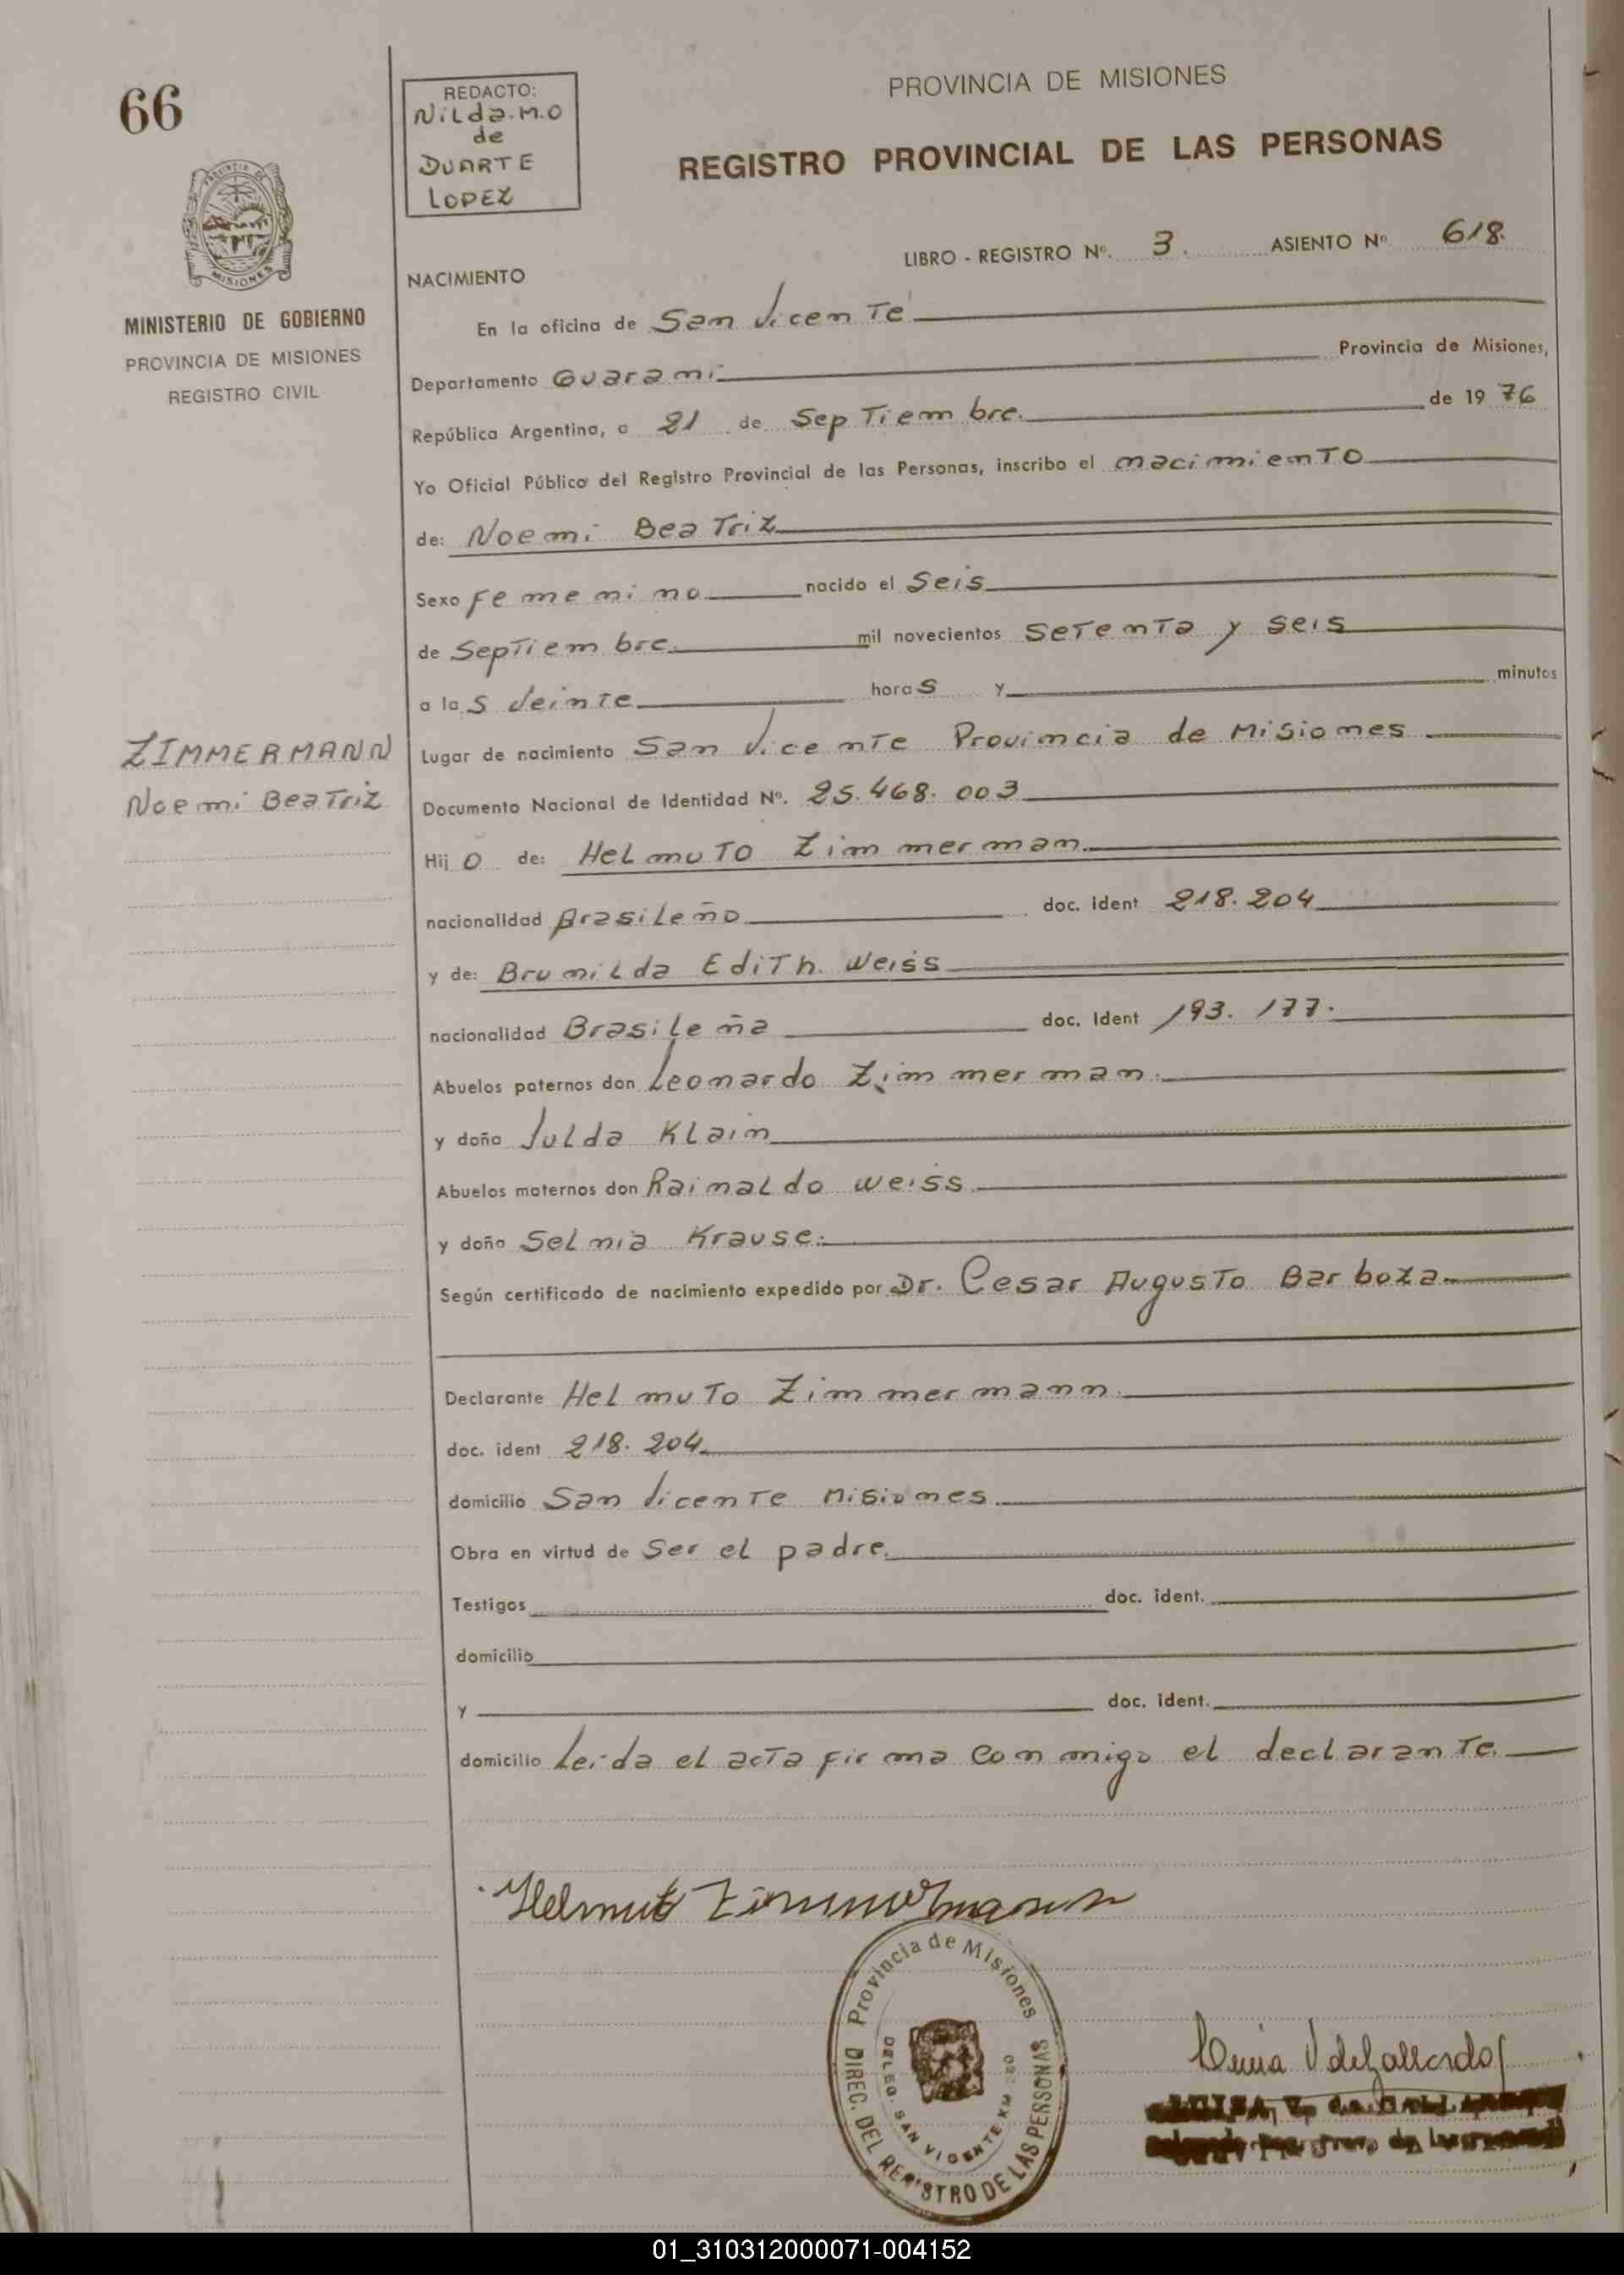 66
REDACTO:
Nilda.M.O
de
DUARTE
LOPEZ
PROVINCIA DE MISIONES
REGISTRO PROVINCIAL DE LAS PERSONAS
PROVINCIA DE
MISIONES
MINISTERIO DE GOBIERNO
PROVINCIA DE MISIONES
REGISTRO CIVIL
LIBRO - REGISTRO Nº. 3. ASIENTO Nº 618.
NACIMIENTO
En la oficina de San Vicente
Departamento Guarani Provincia de Misiones,
República Argentina, a 21 de Septiembre. de 1976
Yo Oficial Público del Registro Provincial de las Personas, inscribo el nacimiento
de: Noemi Beatriz
Sexo Femenino nacido el Seis
de Septiembre. mil novecientos Setenta y seis
a las Veinte horas y minutos
ZIMMERMANN
Noemi Beatriz
Lugar de nacimiento San Vicente Provincia de Misiones
Documento Nacional de Identidad Nº. 25.468.003
Hijo de: Helmuto Zimmerman.
nacionalidad Brasileño doc. ident 218.204
y de: Brunilda Edith. Weiss
nacionalidad Brasileña doc. ident 193.177.
Abuelos paternos don Leonardo Zimmerman.
y doña Julda Klain
Abuelos maternos don Rainaldo Weiss
y doña Selmia Krause.
Según certificado de nacimiento expedido por Dr. Cesar Augusto Barboza.
Declarante Helmuto Zimmermann.
doc. ident 218.204
domicilio San Vicente Misiones
Obra en virtud de Ser el padre.
Testigos doc. ident.
domicilio
y doc. ident.
domicilio Leida el acta firma conmigo el declarante.
Helmut Zimmermann
Provincia de Misiones
DIREC. DEL REGISTRO DE LAS PERSONAS
DELEG. SAN VICENTE KM
01_310312000071-004152